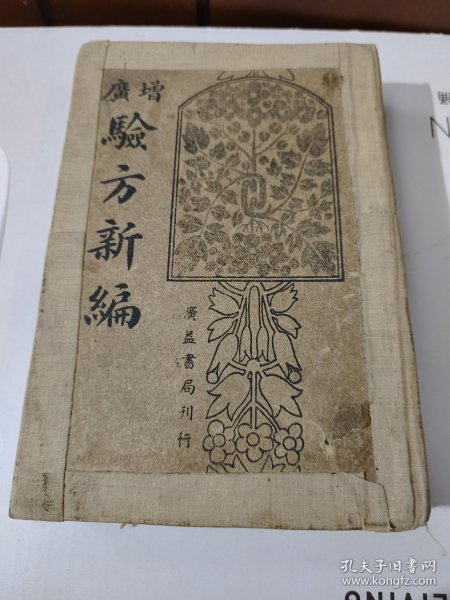 增廣
驗方新編
廣益書局刊行
孔夫子旧书网
www.kongfz.com
LIVING